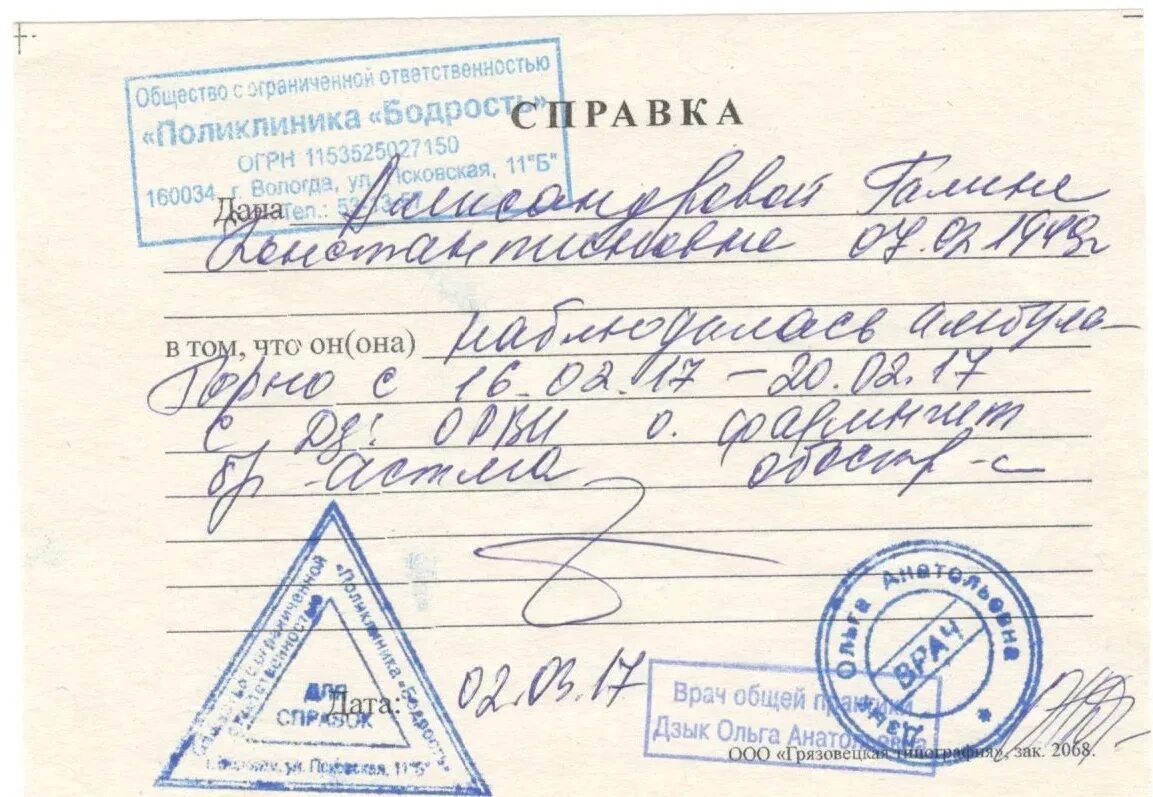 Общество с ограниченной ответственностью
«Поликлиника «Бодрость»
ОГРН 1153525027150
160034, г. Вологда, ул. Псковская, 11"Б"
Тел.:
СПРАВКА
Дана Александровой Галине
Константиновне 07.02.1949г
в том, что он(она) наблюдалась амбула-
торно с 16.02.17 – 20.02.17
с Дз: ОРВИ о. фарингит
бр астма обостр-е
«Поликлиника «Бодрость»
ограниченной
ответственностью
ДЛЯ
СПРАВОК
ул. Псковская, 11"Б"
Дата: 02.03.17
Врач общей практики
Дзык Ольга Анатольевна
Ольга Анатольевна
ВРАЧ
Дзык
ООО «Грязовецкая типография», зак. 2068.